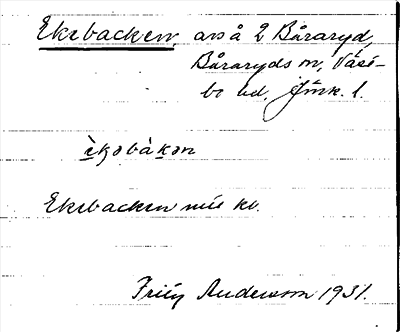 Ekebacken, avs å 2 Båraryd,
Båraryds sn, Väst-
bo hd. Jönk. l.
èkəbàkən
Ekebacken
Fritz Anderson 1931.